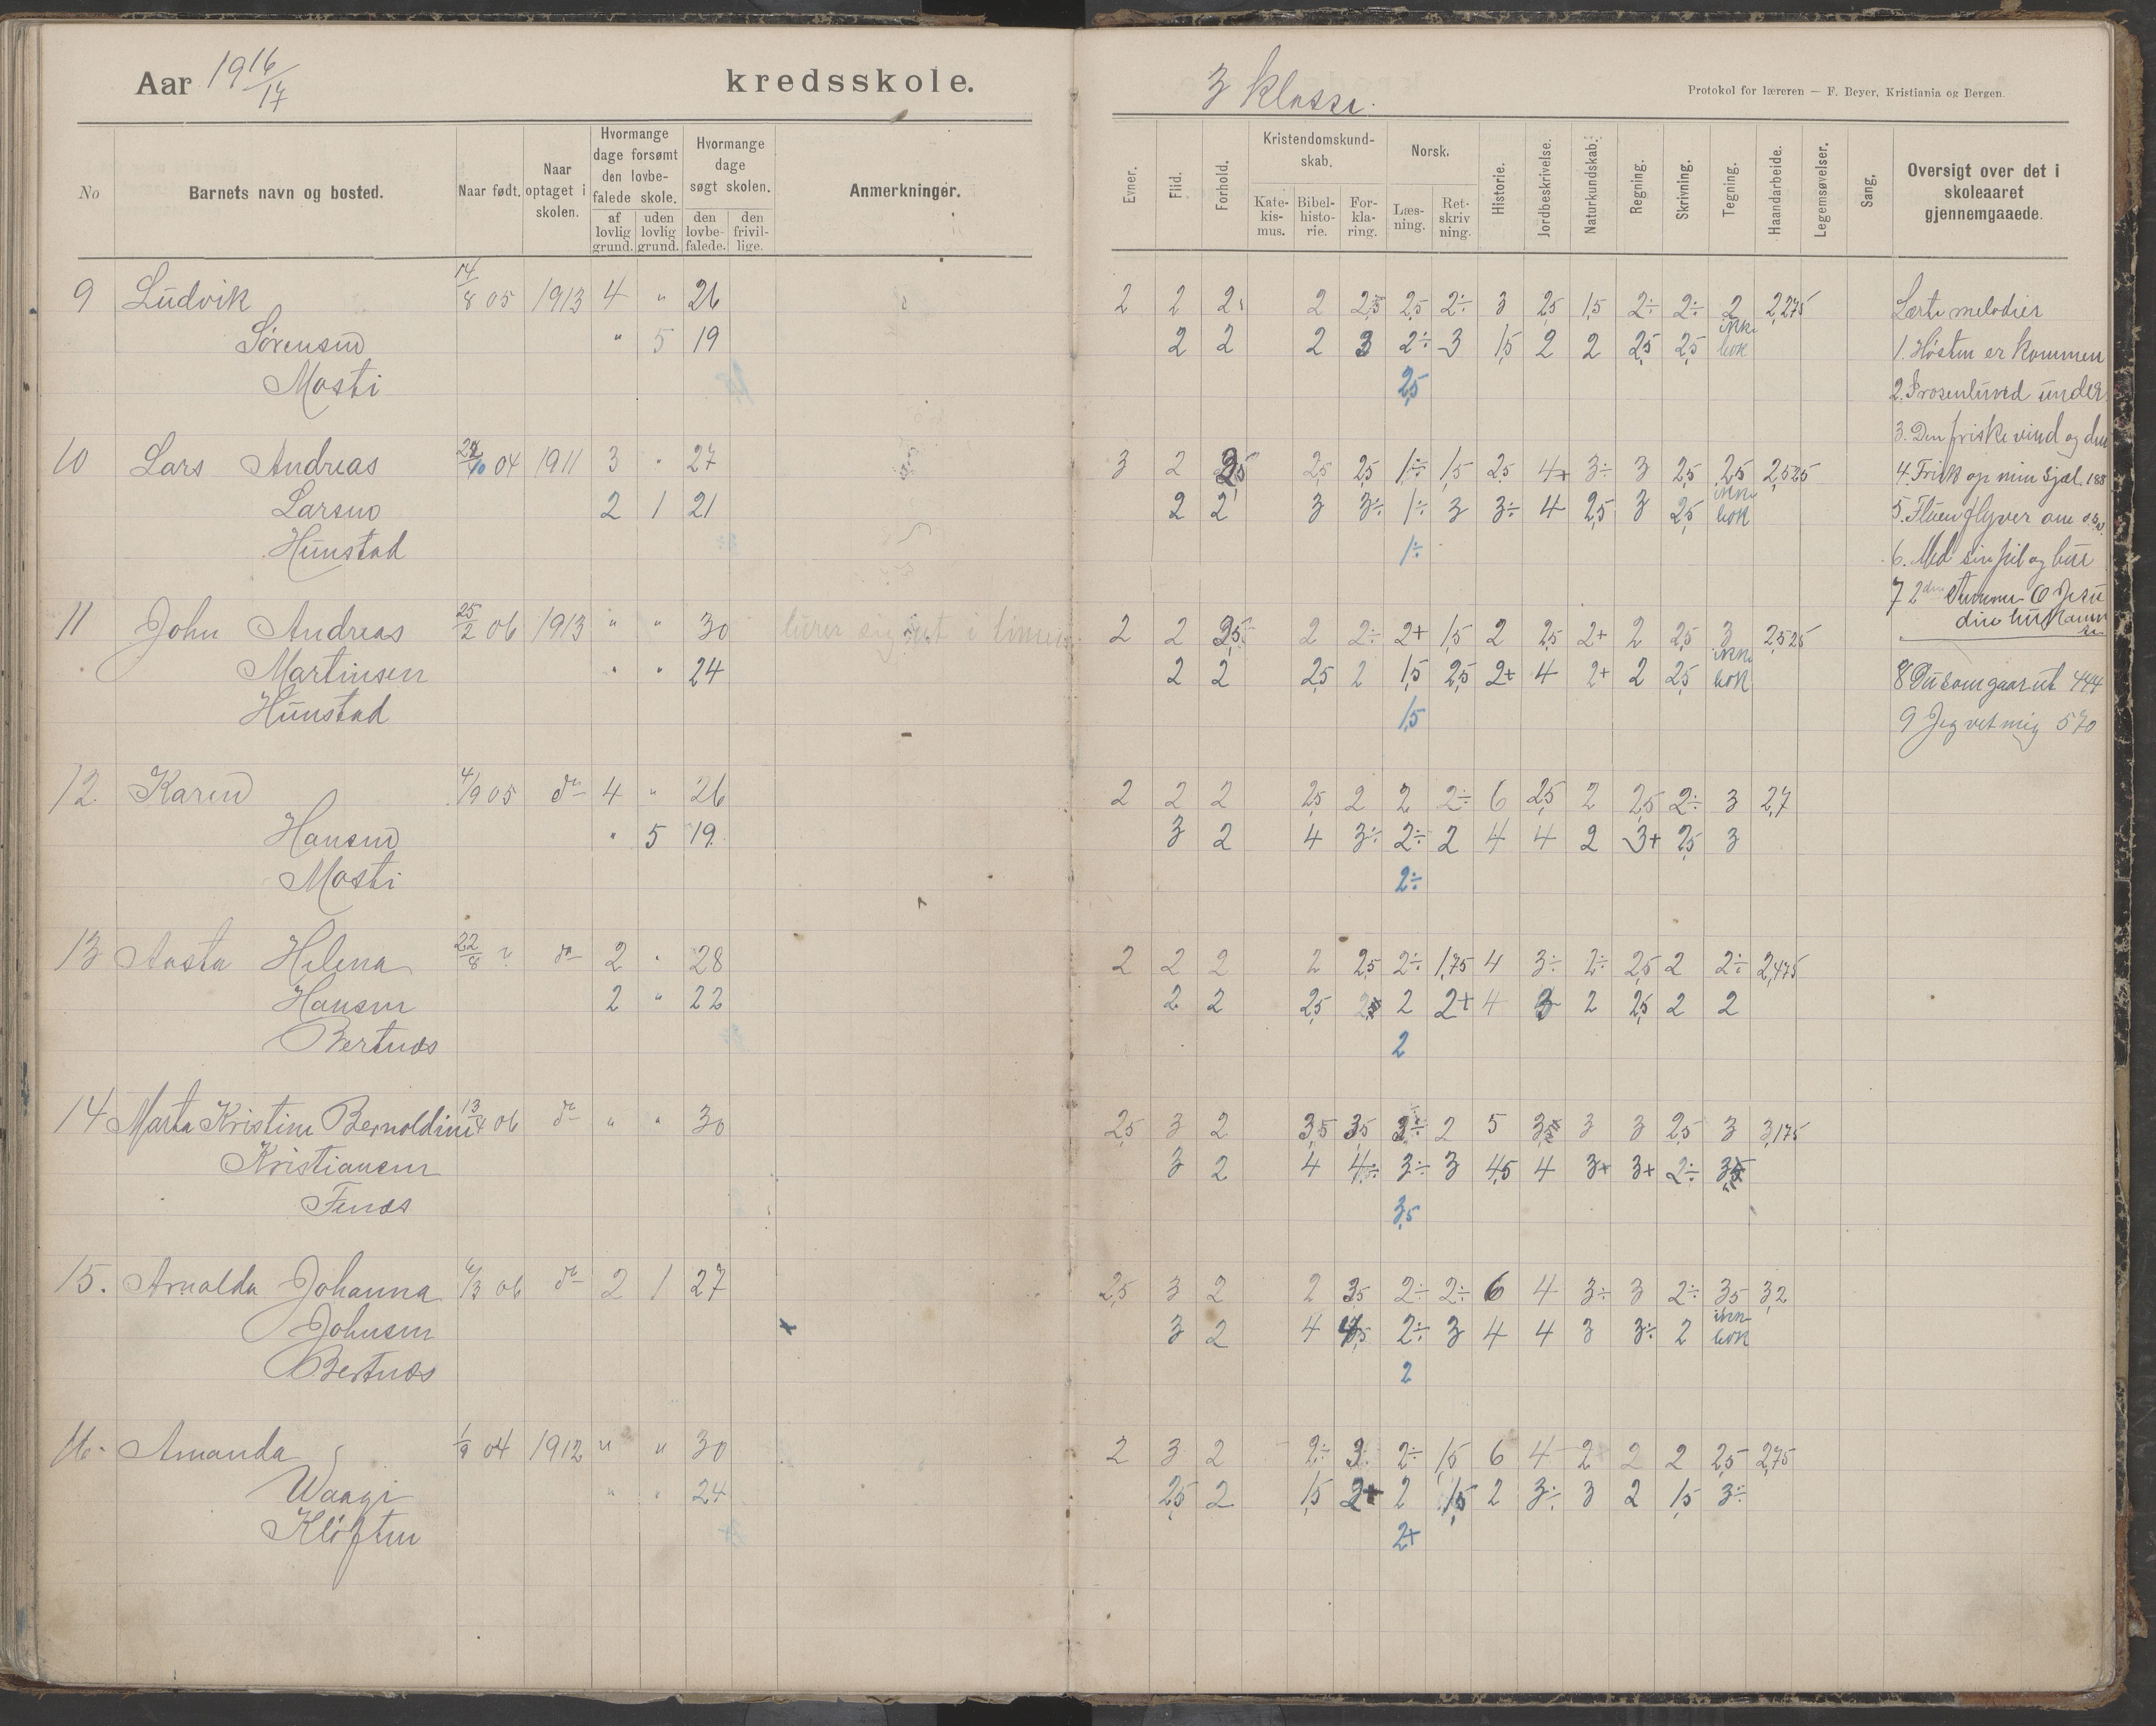 Aar 1916/17 kredsskole.
3 klasse.
Protokol for læreren — F. Beyer, Kristiania og Bergen.
No
Barnets navn og bosted.
Naar født.
Naar optaget i skolen.
Hvormange dage forsømt den lovbefalede skole.
af lovlig grund.
uden lovlig grund.
Hvormange dage søgt skolen.
den lovbefalede.
den frivillige.
Anmerkninger.
Evner.
Flid.
Forhold.
Kristendomskundskab.
Katekismus.
Bibelhistorie.
Forklaring.
Norsk.
Læsning.
Retskrivning.
Historie.
Jordbeskrivelse.
Naturkundskab.
Regning.
Skrivning.
Tegning.
Haandarbeide.
Legemsøvelser.
Sang.
Oversigt over det i skoleaaret gjennemgaaede.
9 Ludvik 14/8 05 1913 4 " 26 2 2 2 2 2,5 2,5 2÷ 3 2,5 1,5 2÷ 2÷ 2 2,275
Sørensen " 5 19 2 2 2 3 2÷ 3 1,5 2 2 2,5 2,5 ikke bok
Mosti 2,5
10 Lars Andreas 10 04 1911 3 " 27 3 2 2,5 2,5 1÷ 1,5 2,5 4+ 3÷ 3 2,5 2,5 2,525
Larsen 2 1 21 2 2 3 3÷ 1÷ 3 3÷ 4 2,5 3 2,5 ikke bok
Hunstad 1÷
11 John Andreas 25/2 06 1913 " " 30 lurer sig ut i timen 2 2 2 2÷ 2+ 1,5 2 2,5 2+ 2 2,5 3 2,525
Martinsen " " 24 2 2 2,5 2 1,5 2,5 2+ 4 2+ 2 2,5 ikke bok
Hunstad 1,5
12. Karen 4/9 05 do 4 " 26 2 2 2 2,5 2 2 2÷ 6 2,5 2 2,5 2÷ 3 2,7
Hansen " 5 19. 3 2 4 3÷ 2÷ 2 4 4 2 3+ 2,5 3
Mosti 2÷
13 Aasta Helena 22/8 " do 2 " 28 2 2 2 2 2,5 2÷ 1,75 4 3÷ 2÷ 2,5 2 2÷ 2,475
Hansen 2 " 22 2 2 2,5 2 2+ 4 3 2 2,5 2 2
Bertnes 2
14 Marta Kristine Bernoldine 13/4 06 do " " 30 2,5 3 2 3,5 3,5 3÷ 2 5 3,5 3 3 2,5 3 3,175
Kristiansen 3 2 4 4÷ 3÷ 3 4,5 4 3+ 3+ 2÷ 3
Fenes 3,5
15. Arnolda Johanna 6/3 06 do 2 1 27 2,5 3 2 2 3,5 2÷ 2÷ 6 4 3÷ 3 2÷ 3,5 3,2
Johnsen 3 2 4 2÷ 3 4 4 3 3÷ 2 ikke bok
Bertnes 2
16. Amanda 1/9 04 1912 " " 30 2 3 2 2÷ 3 2÷ 1,5 6 4 2 2 2 2,5 2,75
Waage " " 24 2,5 2 1,5 2+ 2 1,5 2 3÷ 3 2 1,5 3÷
Kløften 2+
Lærte melodier
1. Høsten er kommen
2. I rosenlund under
3. Den friske vind og den
4. Frisk op min Sjæl. 188
5. Fluen flyver om os
6. Med sin pil og bue
7 2den stemme O Jesu
din
8 Du som gaar ut 444
9 Jeg vet mig 570